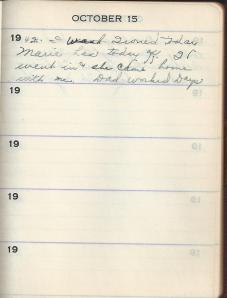 OCTOBER 15
19 42. I Ironed
Marie Lea today
went in & she came home
with me. Dad worked Days
19
19
19
19